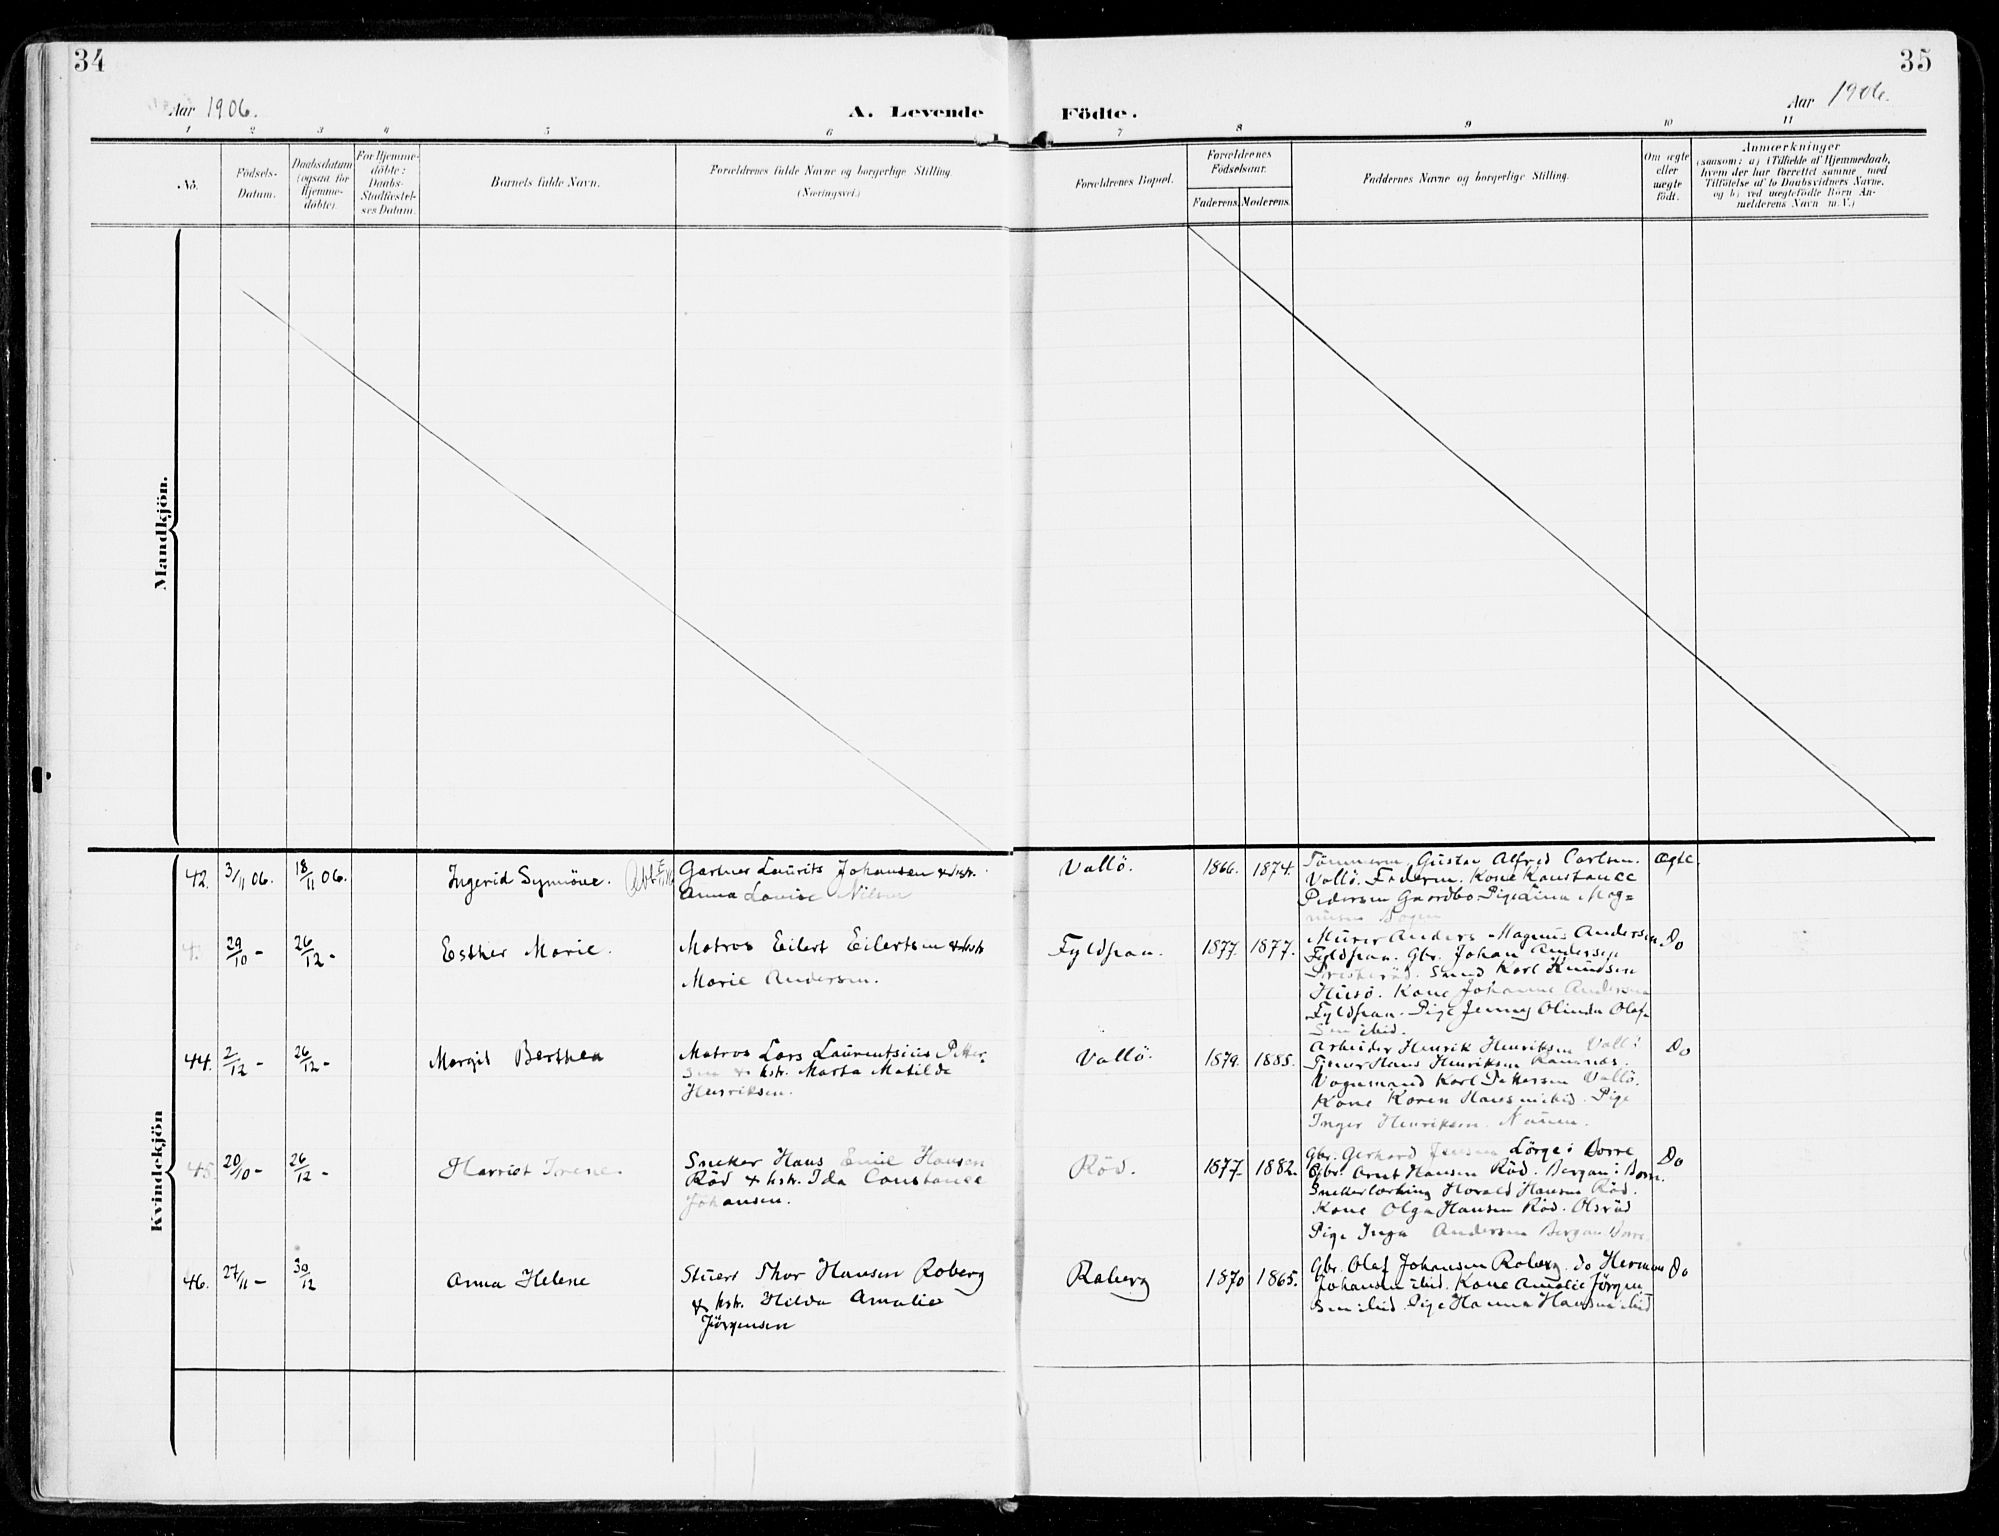 34
35
Aar 1906.
A. Levende
Födte.
Aar 1906.
1 2 3 4 5 6 7 8 9 10 11
No.
Födsels-
Datum.
Daabsdatum
(ogsaa for
Hjemme-
döbte).
For Hjemme-
döbte:
Daabs-
Stadfæstel-
ses Datum.
Barnets fulde Navn.
Forældrenes fulde Navne og borgerlige Stilling.
(Næringsvei.)
Forældrenes Bopæl.
Forældrenes
Födselsaar.
Faderens. Moderens.
Faddernes Navne og borgerlige Stilling.
Om ægte
eller
uægte
födt.
Anmærkninger
(saasom: a) i Tilfælde af Hjemmedaab,
hvem der har forrettet samme, med
Tilföielse af to Daabsvidners Navne,
og b) ved uægtefödte Börn An-
melderens Navn m. V.)
Mandkjön.
Kvindekjön
42. 3/11 06. 18/11 06. Ingerid Synnöve.
Gartner Laurits Johansen & hstr.
Anna Lovise Nilsen
Vallö. 1866. 1874.
Tömmerm. Gustav Alfred Carlsen.
Vallö. Faderen. Kone Konstance
Pedersen Gaardbo. Pige Lina Mag-
nusen
ægte.
29/10 - 26/12 - Esther Marie.
Matros Eilert Eilertsen & hstr
Marie Andersen.
Fyldpaa. 1877. 1877.
Murer Anders Magnus Andersen
Fyldpaa. Gbr. Johan Andersen
Karl Knudsen
Husö. Kone Johanne Andersen
Fyldpaa. Pige Jenny Olinda Olaf-
sen ibid.
Do
44. 2/12 - 26/12 - Margit Berthea
Matros Lars Laurentsius Petter-
sen & hstr. Marta Matilde
Henriksen.
Vallö. 1879. 1885.
Arbeider Henrik Henriksen Vallö
Tjener Hans Henriksen Ramnæs.
Vognmand Karl Pettersen Vallö.
Kone Karen Hansen ibid. Pige
Inger Henriksen.
Do
45. 20/10 - 26/12 - Harriet Irene.
Sneker Hans Emil Hansen
Röd & hstr. Ida Constance
Johansen.
Röd. 1877. 1882.
Gbr. Gerhard Jensen Lörge i Borre
Gbr. Arnt Hansen Röd. Bergan i Borre.
Snekerlærling Harald Hansen Röd.
Kone Olga Hansen Röd. Olsröd
Pige Inga Andersen Bergan Borre.
Do
46. 27/11 - 30/12 Anna Helene
Stuert Thor Hansen Roberg
& hstr. Hilda Amalie
Jörgensen
Roberg 1870 1865.
Gbr. Olaf Johansen Roberg. do Herman
Johansen ibid. Kone Amalie Jörgen
sen ibid. Pige Hanna Hansen ibid
Do